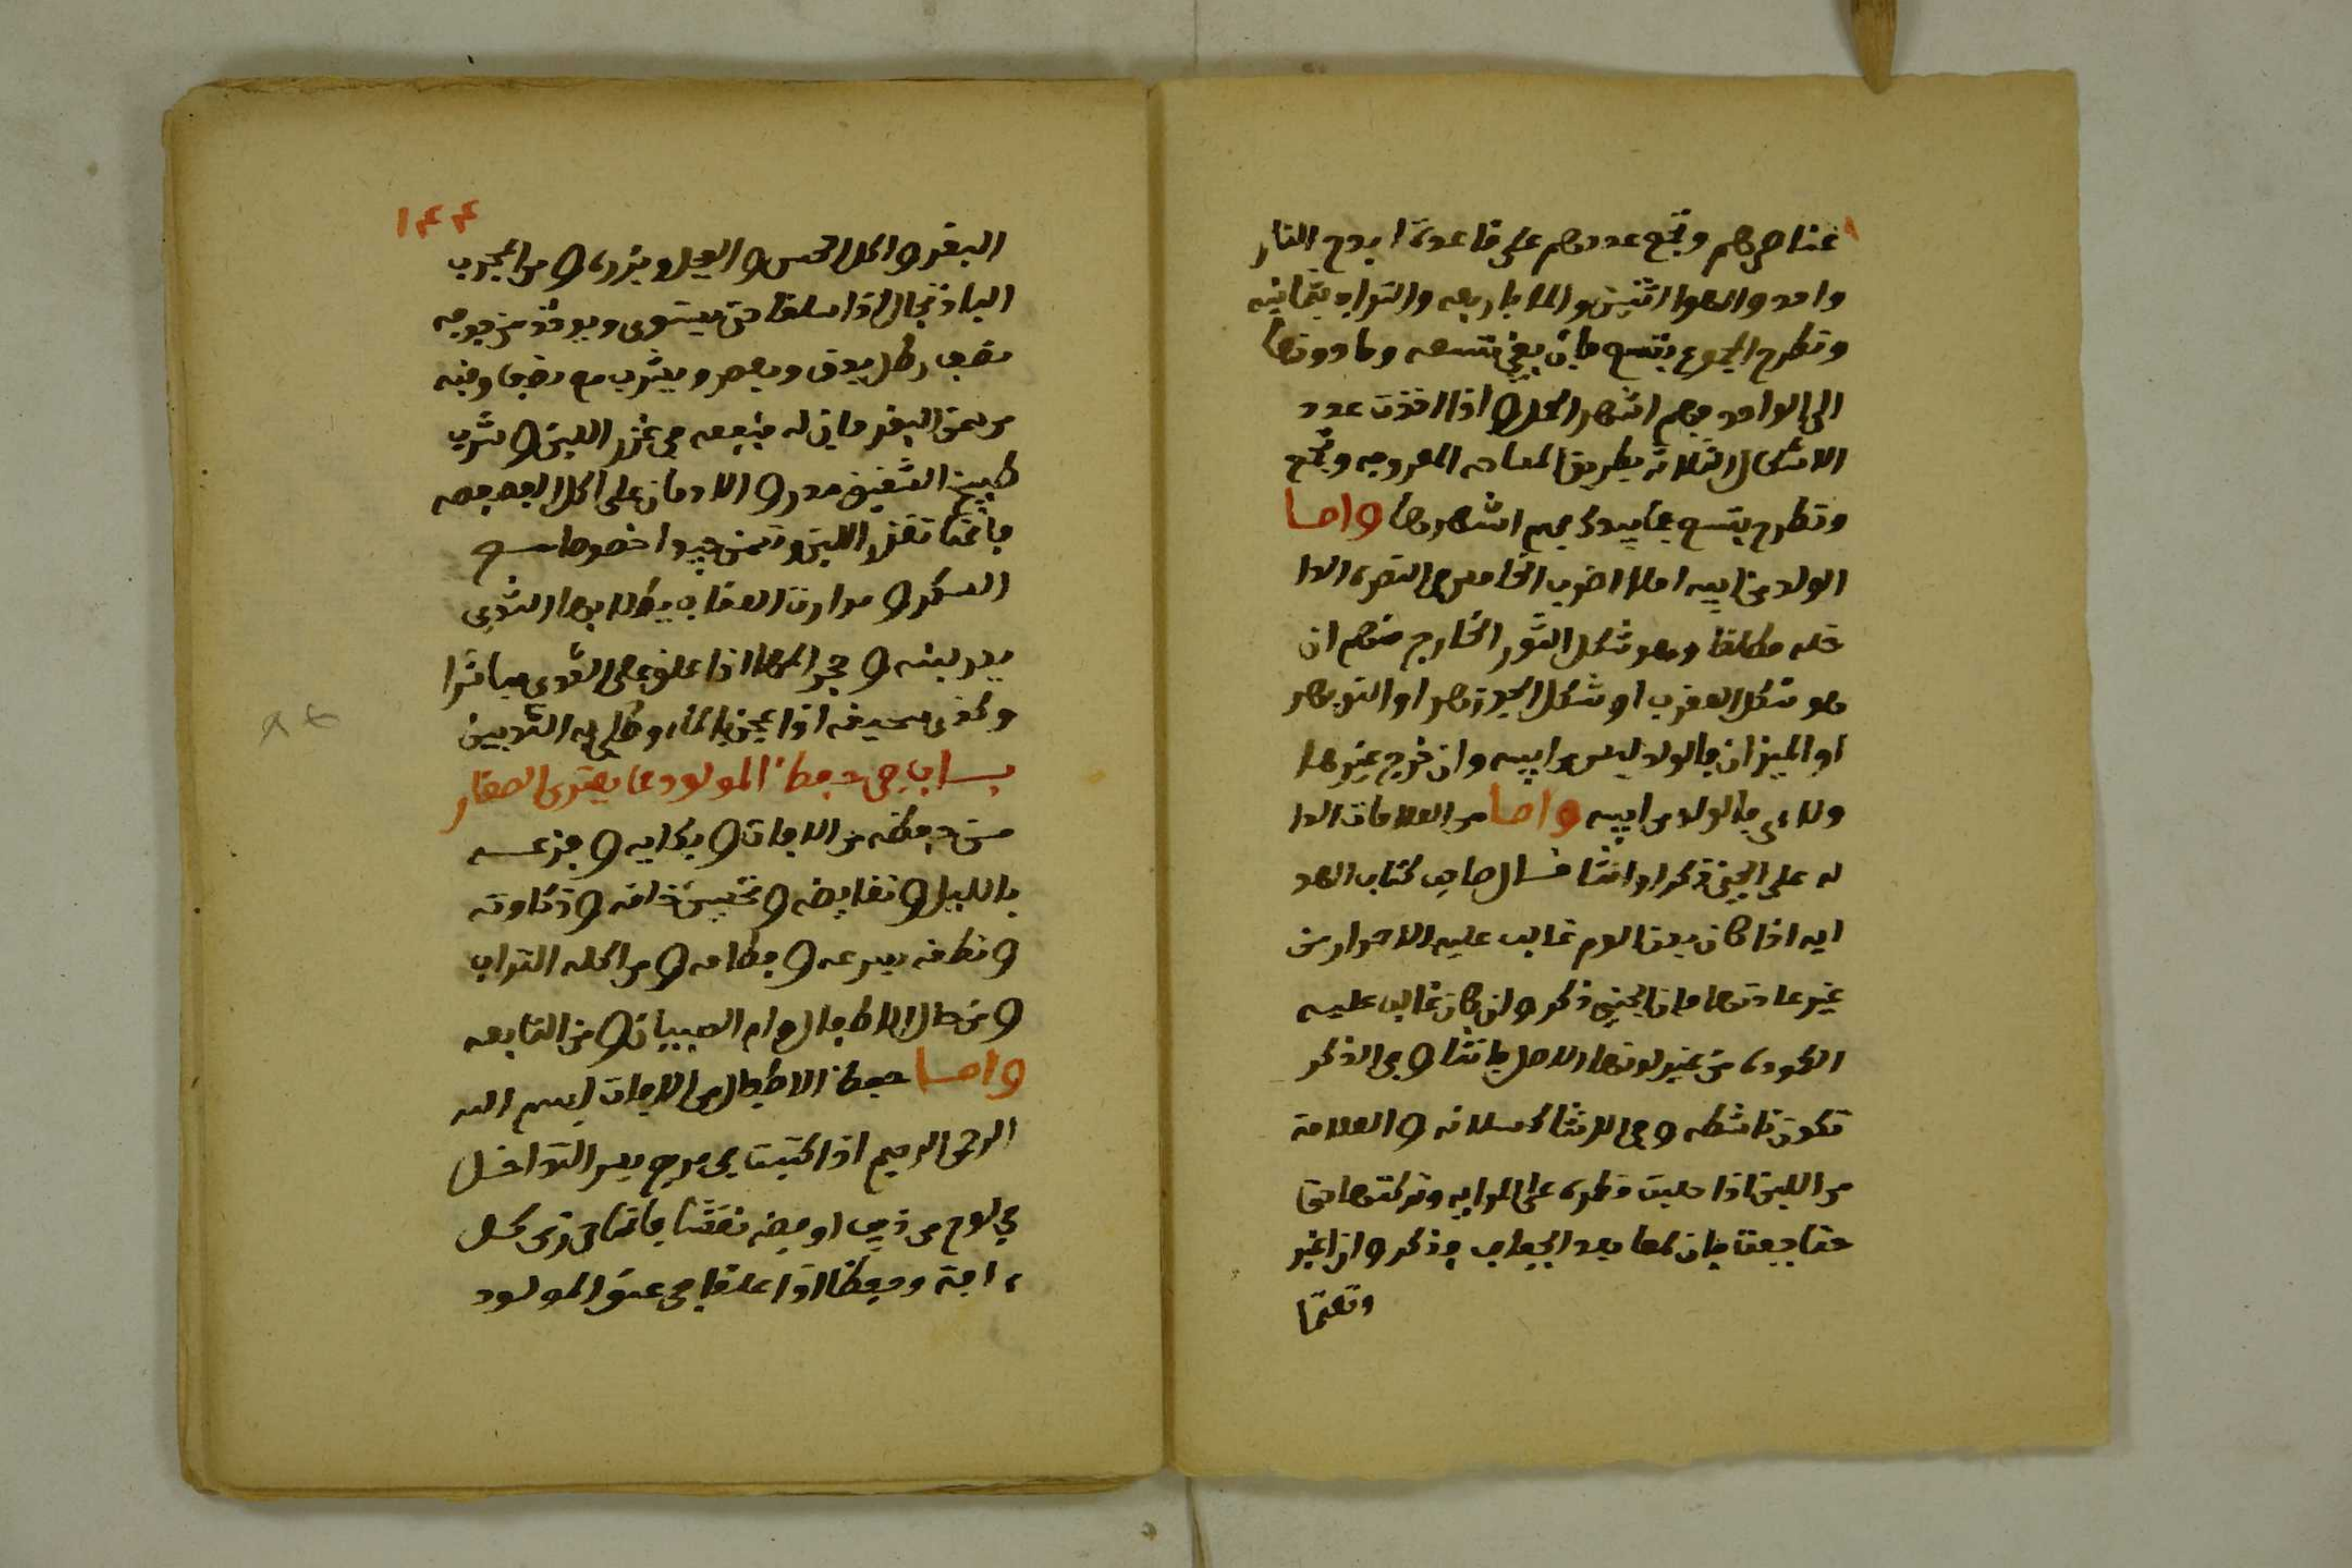 عناصرهم وتجمع عددهم على قاعدة ابدح النار
واحد والهوا اثنين والما باربعه والتراب بثمانيه
وتطرح المجموع بتسع فان بقي تسعه وما دونها
الى الواحد فهم اشهر الحمل و اذا اخذت عدد
الاشكال الثلاثه بطريق المساحه المعروفه وتجمع
وتطرح بتسع فما بيدك فهم اشهرها واما
الولد من ابيه ام لا اضرب الخامس في النصره الدا
خله مطلقا وهو شكل الثور الخارج منهم ان
هو شكل العقرب او شكل الجوزهر او النوبهر
او الميزان فالولد ليس من ابيه وان خرج غيرها
ولاء فالولد من ابيه واما من العلامات الدا
له على الجنين ذكر او انثا قال صاحب كتاب الهد
ايه اذا كان بدن الام غالب عليه الاحمرار من
غير عادتها فان الجنين ذكر وان كان غالب عليه
الكموده من غير لونها الاصل فانثا و في الذكر
تكون ناشطه وفي الانثا كسلانه و العلامة
من اللبن اذا حلبت قطره على المرايه وتركتها حتى
حتا جفت فان لمعا بعد الجفاف فذكر وان اغبر
وتعتما
١٤٤
البقر و اكل الخس و الفجل وبزره و من المجرب
الباذنجان اذا سلقا حتى يستوى ويوخذ من جوفه
نصف رطل يدق ويعصر ويشرب مع نصف اوقيه
من سمن البقر فان له منفعه في غزر اللبن و شرب
طبيخ الشقيق مدر و الادمان على اكل الفصفصه
فانها تغزر اللبن وتسمن جيدا خصوصا مع
السكر و مرارت العقاب يطلا بها الثدي
يدر لبنه و حجر المها اذا علق على الثدى مباشرا
وكذى سحيقه اذا عجن بالماء وطلي به الثديين
بساب في حفظ المولود مما يعترى الصغار
من حفظه من الافات و بكايه و فزعه
بالليل و نفايضه و تحسين خلقه و ذكاوته
و نطقه بسرعه و فطامه و من اكله التراب
و من طحال الاطفال و ام الصبيان و من التابعه
واما حفظ الاطفال من الافات بسم الله
الرحمن الرحيم اذا كتبت في مربع بسر التداخل
في لوح من ذهب او فضه نقشا فانها حرز من كل
ءافة وحفظا اذا علقا في عنق المولود